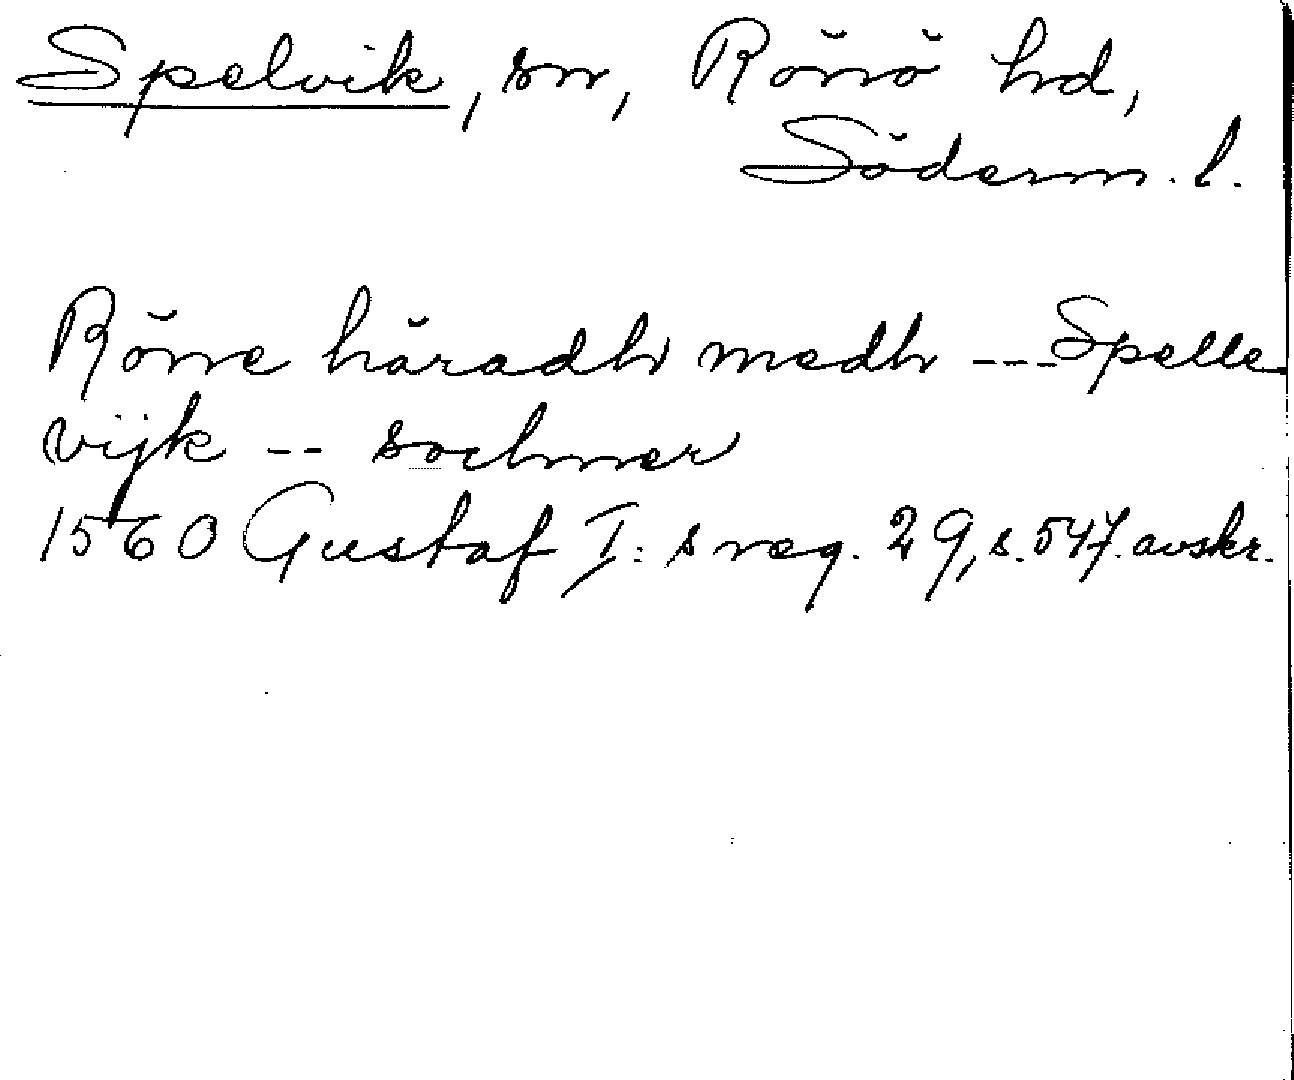 Spelvik, sn, Rönö hd,
Söderm. l.
Rönne häradh medh --- Spelle
vijk -- sochner
1560 Gustaf I:s reg. 29, s. 547. avskr.